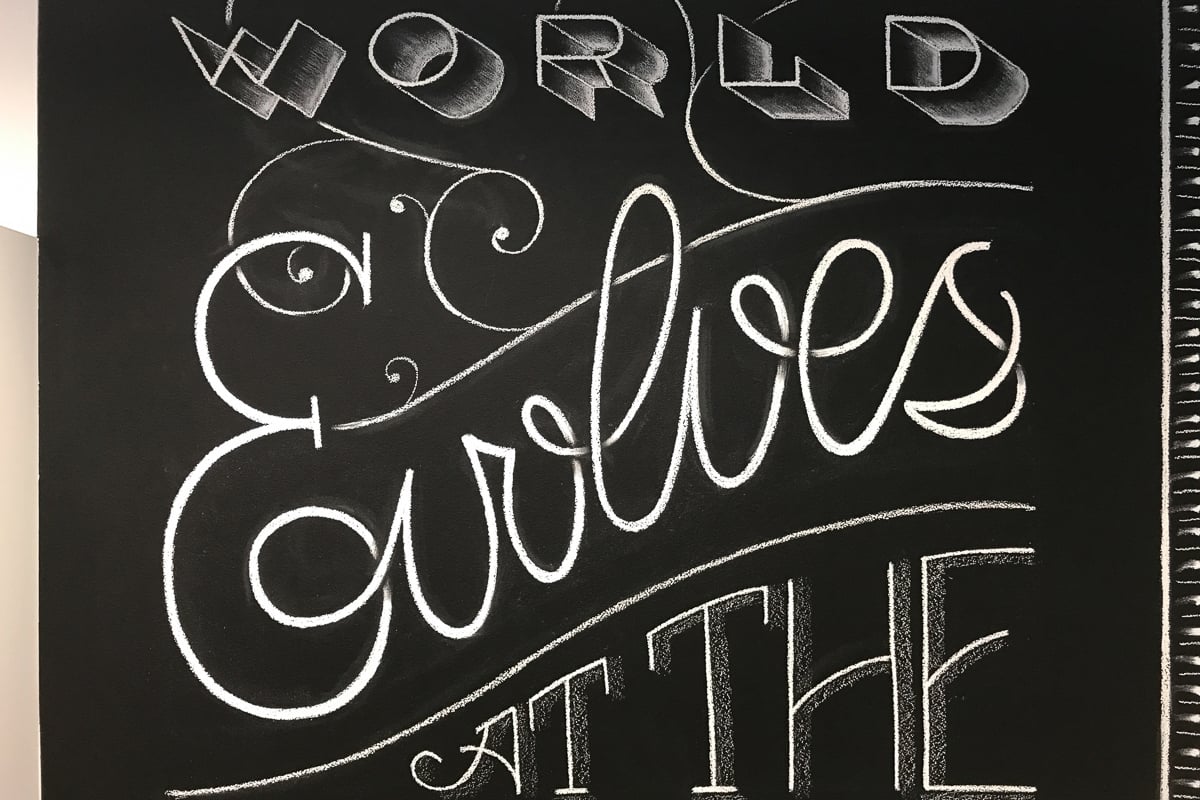 WORLD
Evolves
AT THE